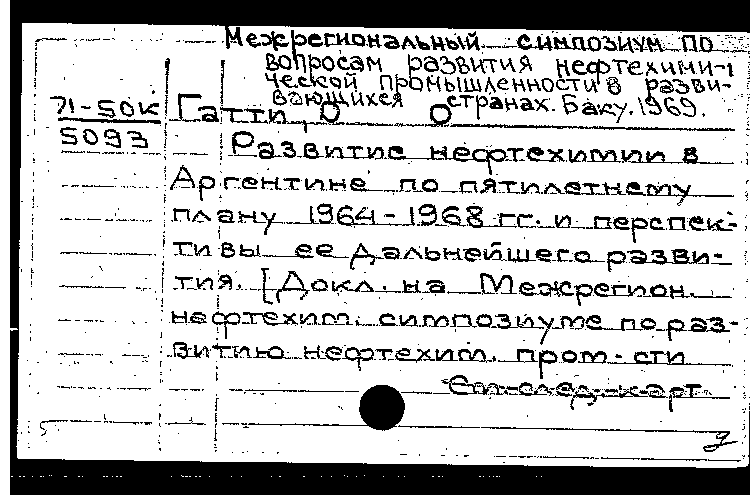 Межрегиональный симпозиум по
вопросам развития нефтехими-
ческой промышленности в разви-
вающихся странах. Баку. 1969.
71-50К Гатти, О
5093
Развитие нефтехимии в
Аргентине по пятилетнему
плану 1964-1968 гг. и перспек-
тивы ее дальнейшего разви-
тия. [Докл. на Межрегион.
нефтехим. симпозиуме по раз-
витию нефтехим. пром-сти
См. след. к-арт.
5